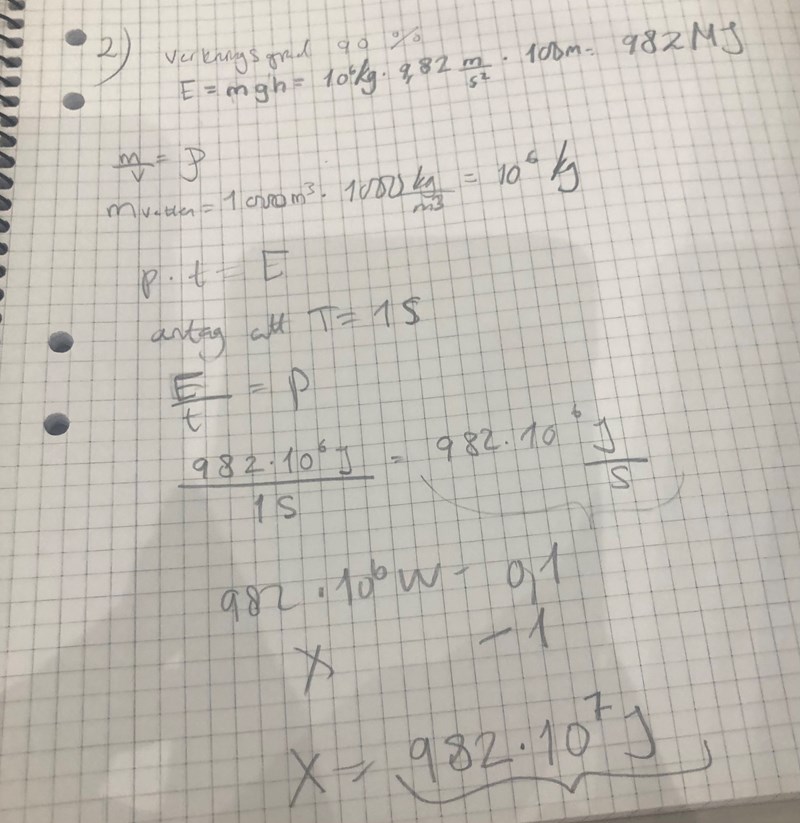 2) Verkningsgrad 90 %
E = mgh = 10⁶kg · 9,82 m/s² · 100m = 982 MJ
m/v = ρ
m vatten = 1000m³ · 1000 kg/m³ = 10⁶ kg
p · t = E
antag att T = 1S
E/t = P
982·10⁶J/1S = 982·10⁶ J/S
982·10⁶W - 0,1
X - 1
X = 982·10⁷J